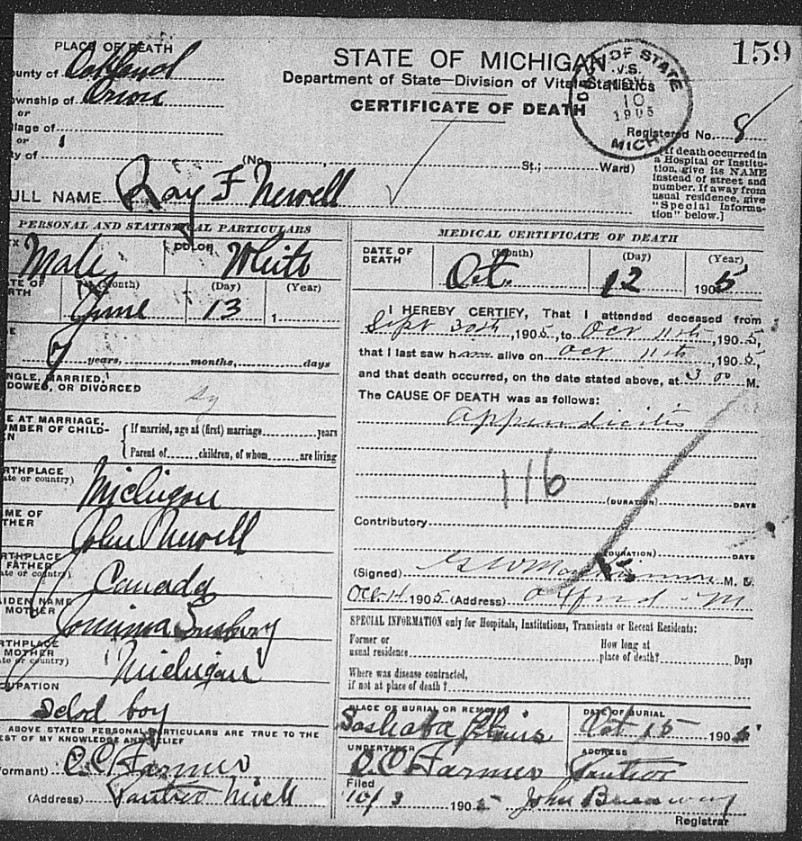 PLACE OF DEATH
ounty of Oakland
ownship of Orion
or
llage of
or
ty of
STATE OF MICHIGAN
Department of State—Division of Vital Statistics
CERTIFICATE OF DEATH
159
DIV. OF STATE
V.S.
NOV
10
1905
MICH
Registered No. 8
(No. St.; Ward)
[If death occurred in
a Hospital or Institu-
tion, give its NAME
instead of street and
number. If away from
usual residence, give
"Special Informa-
tion" below.]
ULL NAME Ray F Newell
PERSONAL AND STATISTICAL PARTICULARS
Male COLOR White
(Month) (Day) (Year)
June 13 1
7 years, months, days
NGLE, MARRIED,
DOWED, OR DIVORCED
Sg
E AT MARRIAGE,
UMBER OF CHILD-
EN
If married, age at (first) marriage years
Parent of children, of whom are living
RTHPLACE
ate or country) Michigan
ME OF
THER John Newell
RTHPLACE
FATHER
ate or country) Canada
AIDEN NAME
MOTHER
RTHPLACE
MOTHER
te or country) Michigan
CUPATION
School boy
ABOVE STATED PERSONAL PARTICULARS ARE TRUE TO THE
EST OF MY KNOWLEDGE AND BELIEF
formant) O.C. Farmer
(Address)
MEDICAL CERTIFICATE OF DEATH
DATE OF
DEATH
(Month) (Day) (Year)
Oct. 12 1905
I HEREBY CERTIFY, That I attended deceased from
Sept 30th, 1905, to Oct 11th, 1905,
that I last saw him alive on Oct 11th, 1905,
and that death occurred, on the date stated above, at 3 00 M.
The CAUSE OF DEATH was as follows:
Appendicitis
116
(DURATION) DAYS
Contributory
(DURATION) DAYS
(Signed) M. D.
Oct 14 1905 (Address)
SPECIAL INFORMATION only for Hospitals, Institutions, Transients or Recent Residents:
Former or
usual residence
How long at
place of death? Days
Where was disease contracted,
if not at place of death?
PLACE OF BURIAL OR REMOVAL
Sashabaw Plains
DATE OF BURIAL
Oct 15 1905
UNDERTAKER
O.C. Farmer
ADDRESS
Filed
190
John
Registrar